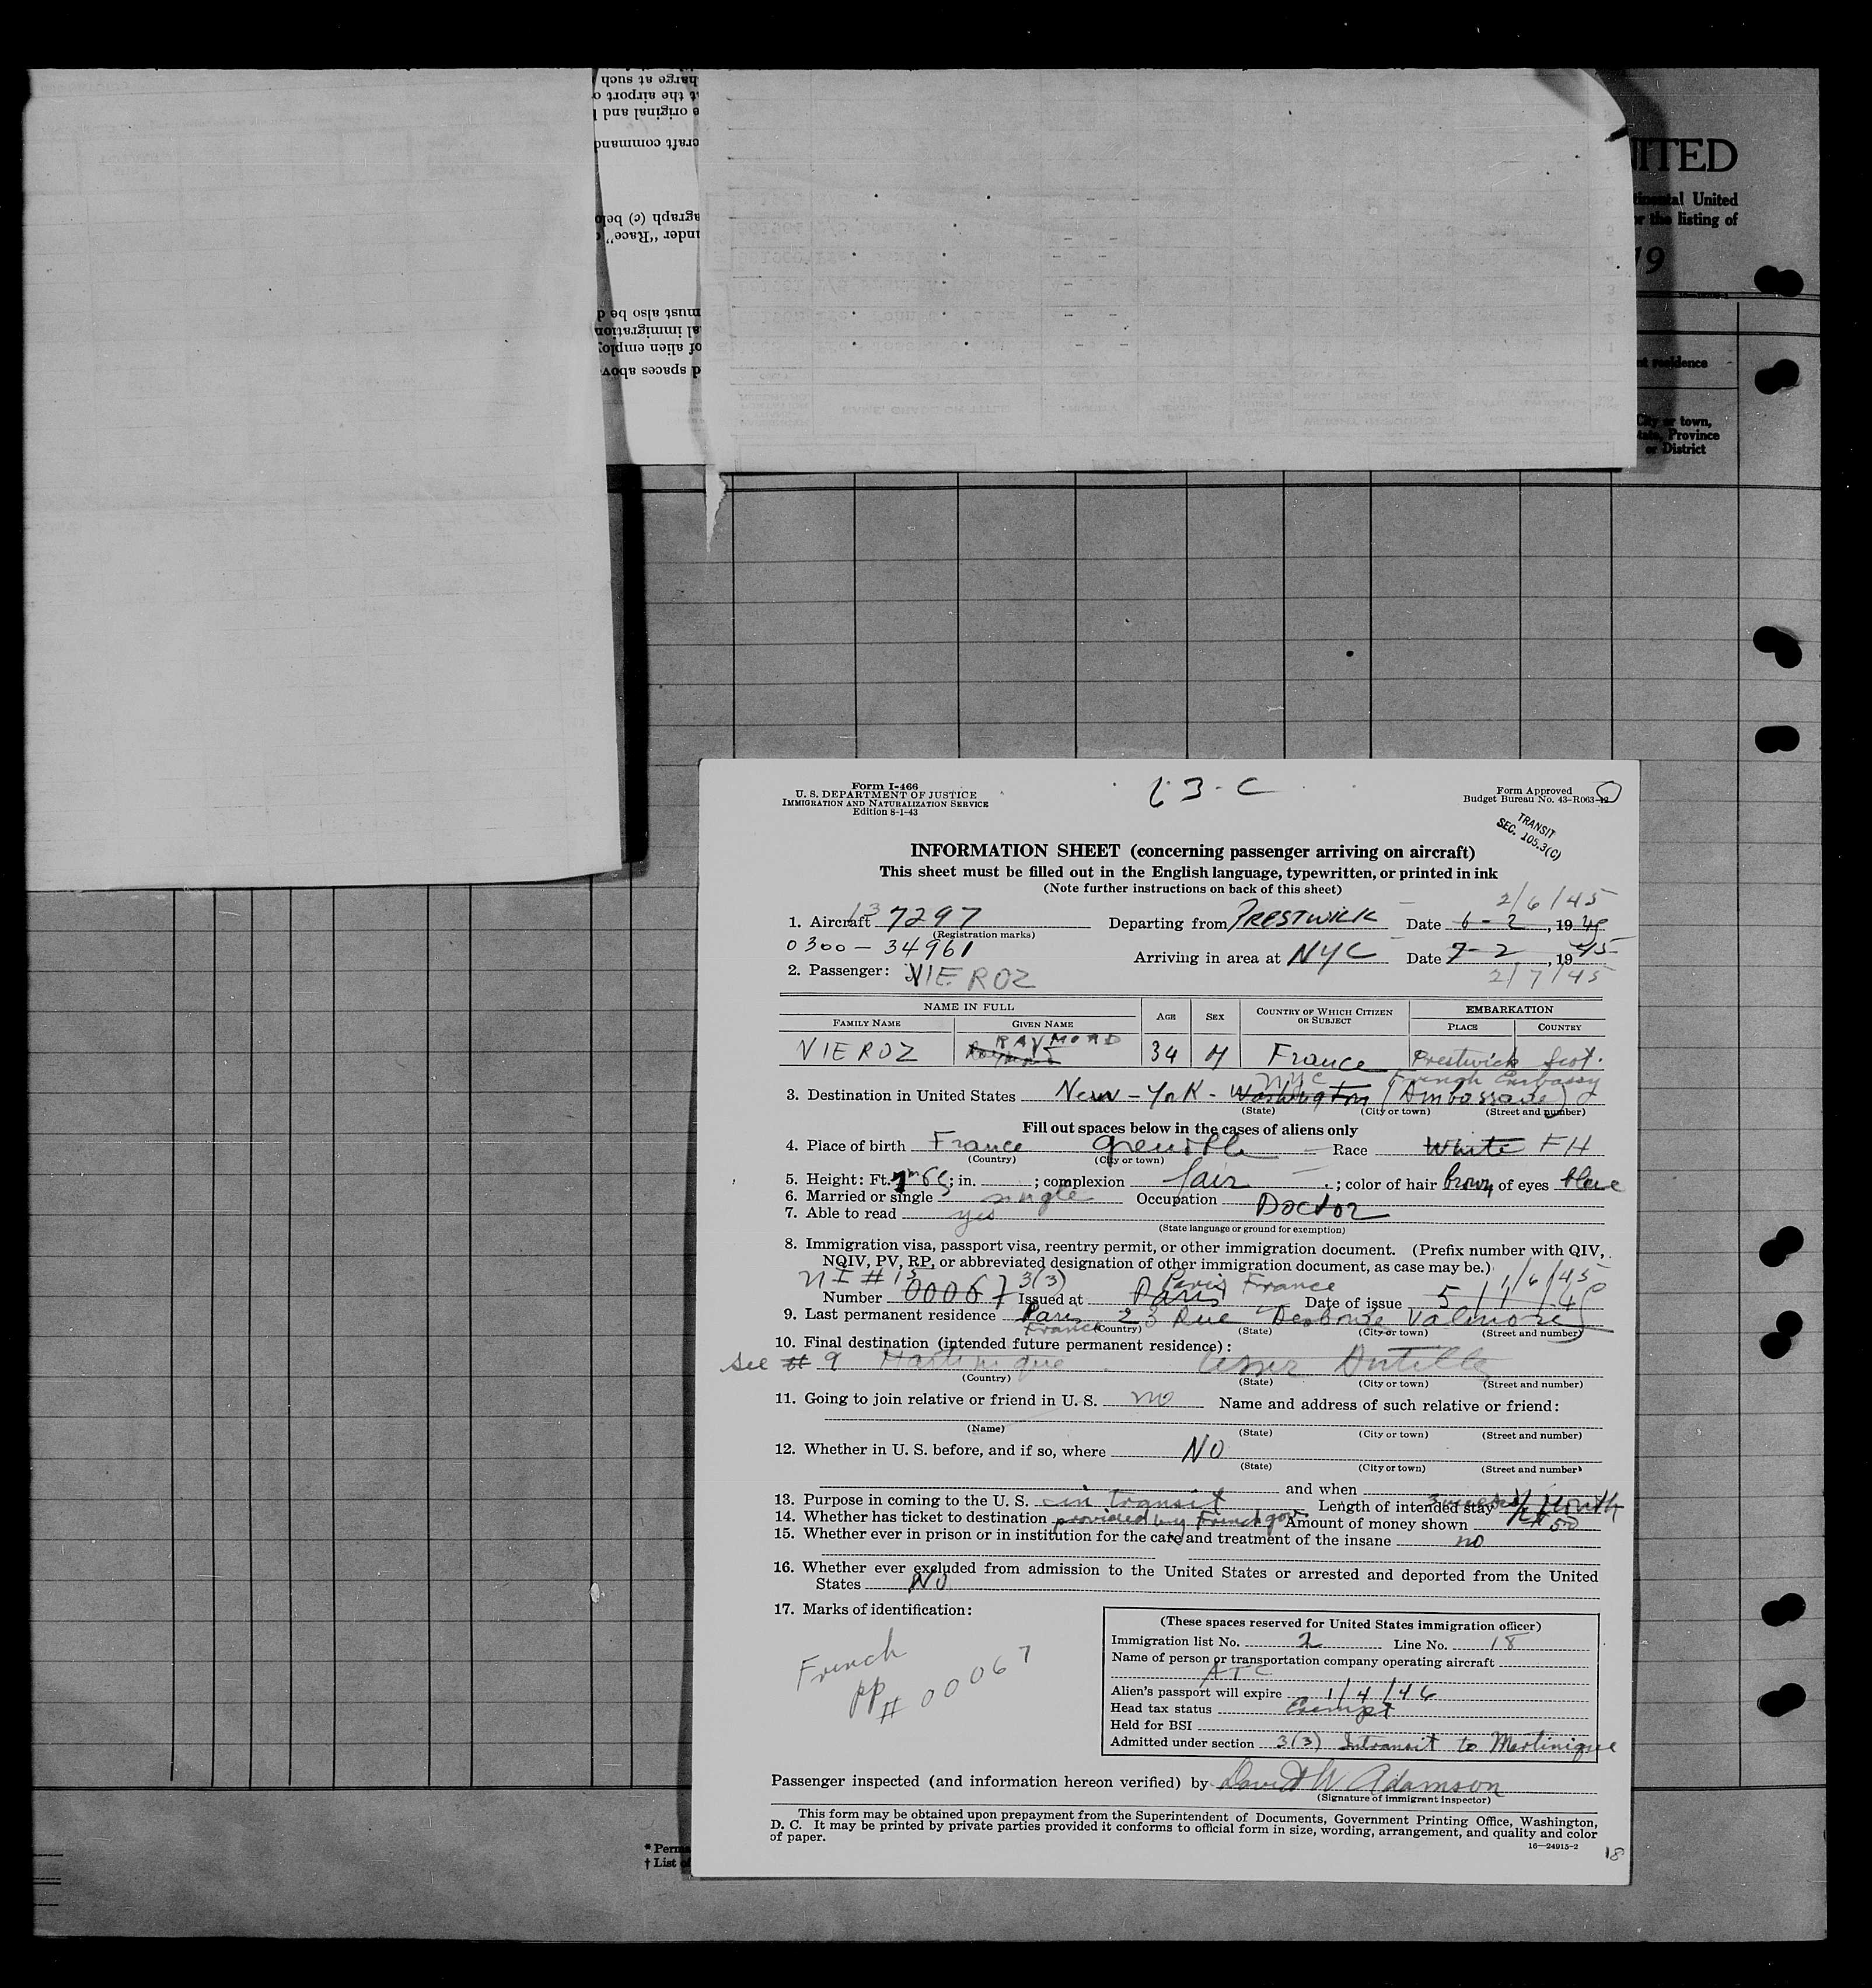 NITED
tinental United
or the listing of
19
nt residence
City or town,
State, Province
or District
harge at such
t the airport o
e original and
craft command
agraph (c) belo
nder "Race"
must also be d
al immigration
of alien employ
d spaces above
Form I-466
U. S. DEPARTMENT OF JUSTICE
IMMIGRATION AND NATURALIZATION SERVICE
Edition 8-1-43
63-C
Form Approved
Budget Bureau No. 43-R063-42
TRANSIT
SEC. 105.3(C)
INFORMATION SHEET (concerning passenger arriving on aircraft)
This sheet must be filled out in the English language, typewritten, or printed in ink
(Note further instructions on back of this sheet)
2/6/45
1. Aircraft 137297 Departing from PRESTWICK Date 6-2, 1945
(Registration marks)
0300-34961
Arriving in area at NYC Date 7-2, 1945
2. Passenger: VIEROZ 2/7/45
NAME IN FULL AGE SEX COUNTRY OF WHICH CITIZEN OR SUBJECT EMBARKATION
FAMILY NAME GIVEN NAME PLACE COUNTRY
VIEROZ RAYMOND 34 M France Prestwick Scot.
NYC French Embassy
3. Destination in United States New-York - Washington (Ambassade)
(State) (City or town) (Street and number)
Fill out spaces below in the cases of aliens only
4. Place of birth France Grenoble Race White FH
(Country) (City or town)
5. Height: Ft. ; in. ; complexion fair ; color of hair brown of eyes blue
6. Married or single single Occupation Doctor
7. Able to read yes
(State language or ground for exemption)
8. Immigration visa, passport visa, reentry permit, or other immigration document. (Prefix number with QIV,
NQIV, PV, RP, or abbreviated designation of other immigration document, as case may be.)
3(3) Paris France 1/6/45
Number 00067 Issued at Paris Date of issue 5/1/45
9. Last permanent residence Paris 23 Rue Desborde Valmore
France (Country) (State) (City or town) (Street and number)
10. Final destination (intended future permanent residence):
See # 9 Martinique Lesser Antille
(Country) (State) (City or town) (Street and number)
11. Going to join relative or friend in U. S. no Name and address of such relative or friend:
(Name) (State) (City or town) (Street and number)
12. Whether in U. S. before, and if so, where NO
(State) (City or town) (Street and number)
and when
13. Purpose in coming to the U. S. in transit Length of intended stay Month
14. Whether has ticket to destination provided by French gov. Amount of money shown 50
15. Whether ever in prison or in institution for the care and treatment of the insane no
16. Whether ever excluded from admission to the United States or arrested and deported from the United
States NO
17. Marks of identification:
French
pp
# 00067
(These spaces reserved for United States immigration officer)
Immigration list No. 2 Line No. 18
Name of person or transportation company operating aircraft
ATC
Alien's passport will expire 1/4/46
Head tax status Exempt
Held for BSI
Admitted under section 3(3) Intransit to Martinique
Passenger inspected (and information hereon verified) by David W Adamson
(Signature of immigrant inspector)
This form may be obtained upon prepayment from the Superintendent of Documents, Government Printing Office, Washington,
D. C. It may be printed by private parties provided it conforms to official form in size, wording, arrangement, and quality and color
of paper.
16—24915-2
18
* Perma
† List of